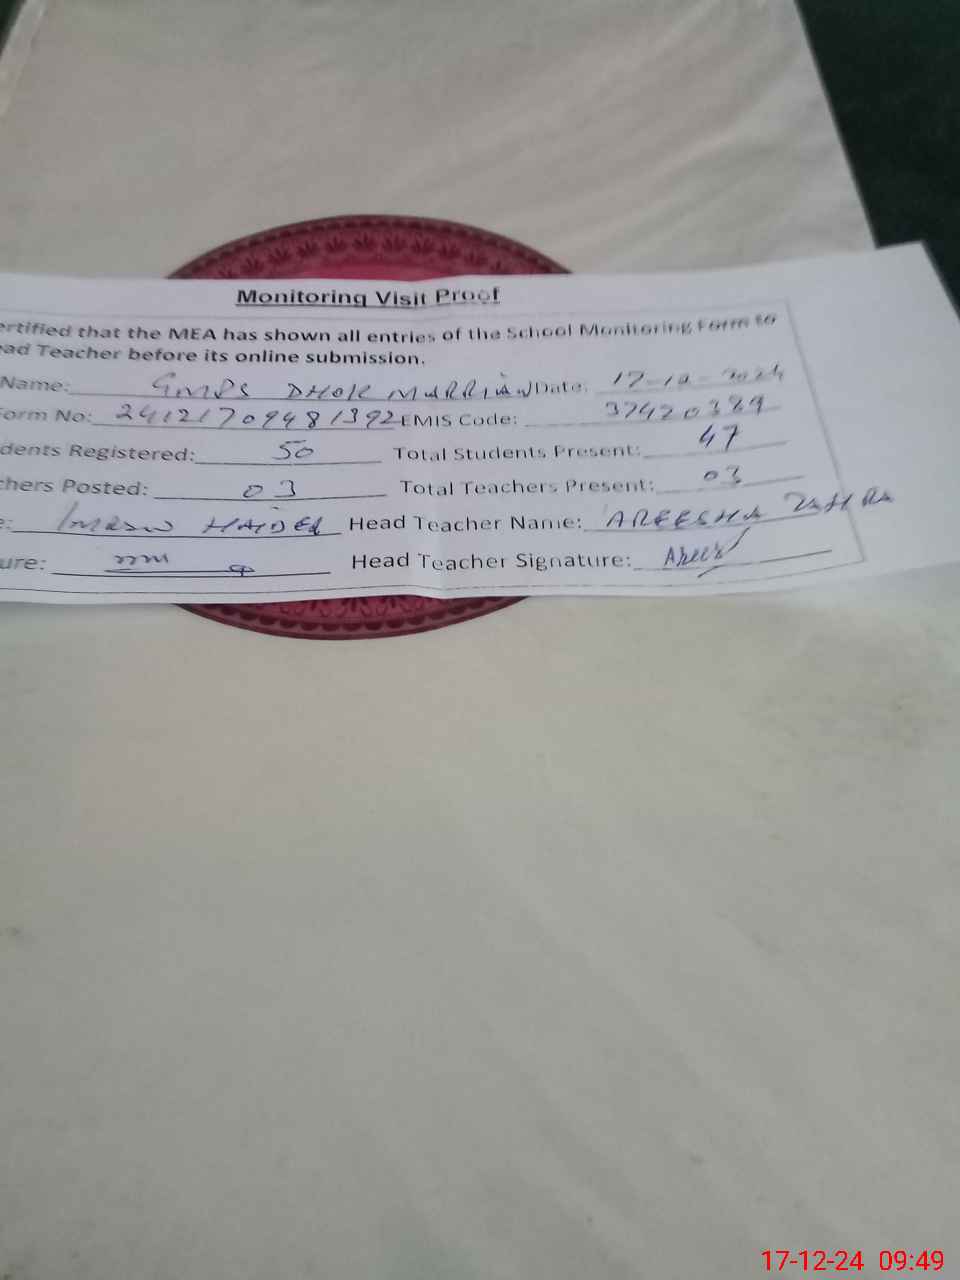 Monitoring Visit Proof
ertified that the MEA has shown all entries of the School Monitoring Form to
ead Teacher before its online submission.
Name: GMPS DHOK MARRIAN Date: 17-12-2024
Form No: 24121709481392 EMIS Code: 37420389
dents Registered: 50 Total Students Present: 47
chers Posted: 03 Total Teachers Present: 03
e: IMRAN HAIDER Head Teacher Name: AREESHA ZAHRA
ure: Head Teacher Signature: Arees
17-12-24 09:49